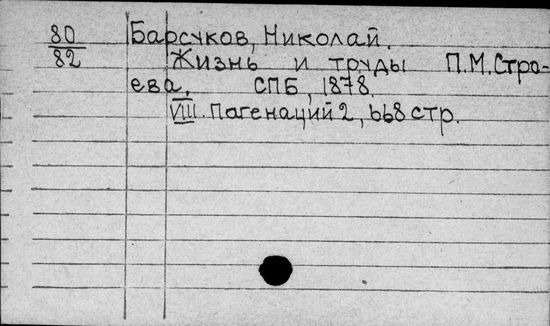 80
82
Барсуков, Николай.
Жизнь и труды П.М. Стро-
ева. СПБ, 1878.
VIII. Пагенаций 2, 668 стр.